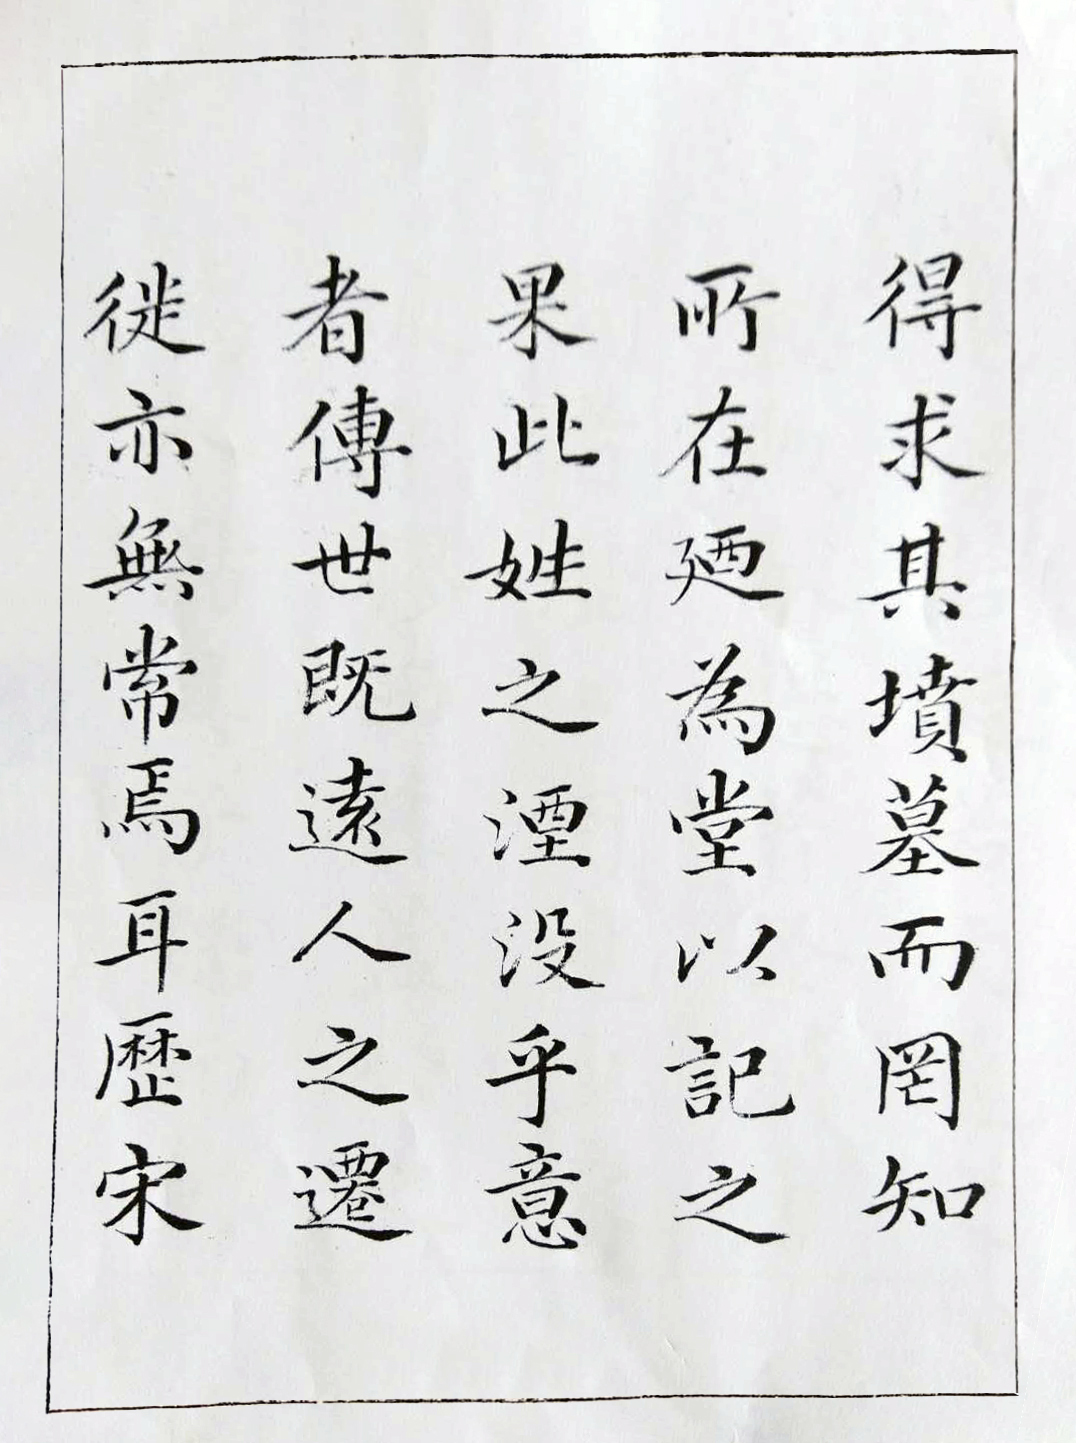 得求其墳墓而罔知
所在廼為堂以記之
果此姓之湮没乎意
者傳世既遠人之遷
徙亦無常焉耳歷宋